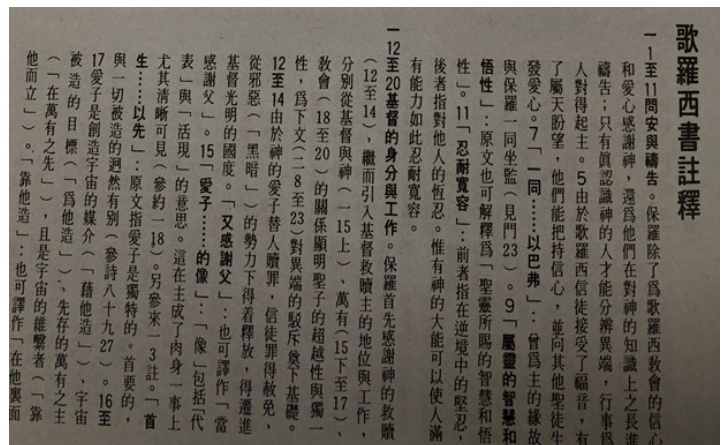 歌羅西書註釋
一1至11問安與禱告。保羅除了爲歌羅西教會的信
和愛心感謝神，還爲他們在對神的知識上之長進
禱告；只有眞認識神的人才能分辨異端，行事爲
人對得起主。5由於歌羅西信徒接受了福音，有
了屬天盼望，他們能把持信心，並向其他聖徒生
發愛心。7「一同……以巴弗」：曾爲主的緣故
與保羅一同坐監，見門23）。9「屬靈的智慧和
悟性」：原文也可解釋爲「聖靈所賜的智慧和悟
性」。11「忍耐寬容」：前者指在逆境中的堅忍，
後者指對他人的恆忍。惟有神的大能可以使人滿
有能力如此忍耐寬容。
一12至20基督的身分與工作。保羅首先感謝神的救贖
（12至14），繼而引入基督救贖主的地位與工作，
分別從基督與神（一15上）、萬有（15下至17）、
教會（18至20）的關係顯明聖子的超越性與獨一
性，爲下文（二8至23）對異端的駁斥奠下基礎。
12至14由於神的愛子替人贖罪，信徒罪得赦免，
從邪惡（「黑暗」）的勢力下得着釋放，得遷進
基督光明的國度。「又感謝父」：也可譯作「當
感謝父」。15「愛子……的像」：「像」包括「代
表」與「活現」的意思。這在主成了肉身一事上
尤其清晰可見（參約一18）。另參來一3註。「首
生……以先」：原文指愛子是獨特的。首要的，
與一切被造的迥然有別（參詩八十九27）。16至
17愛子是創造宇宙的媒介（「藉他造」）、宇宙
被造的目標（「爲他造」）、先存的萬有之主
（「在萬有之先」），且是宇宙的維繫者（「靠
他而立」）。「靠他造」：也可譯作「在他裏面